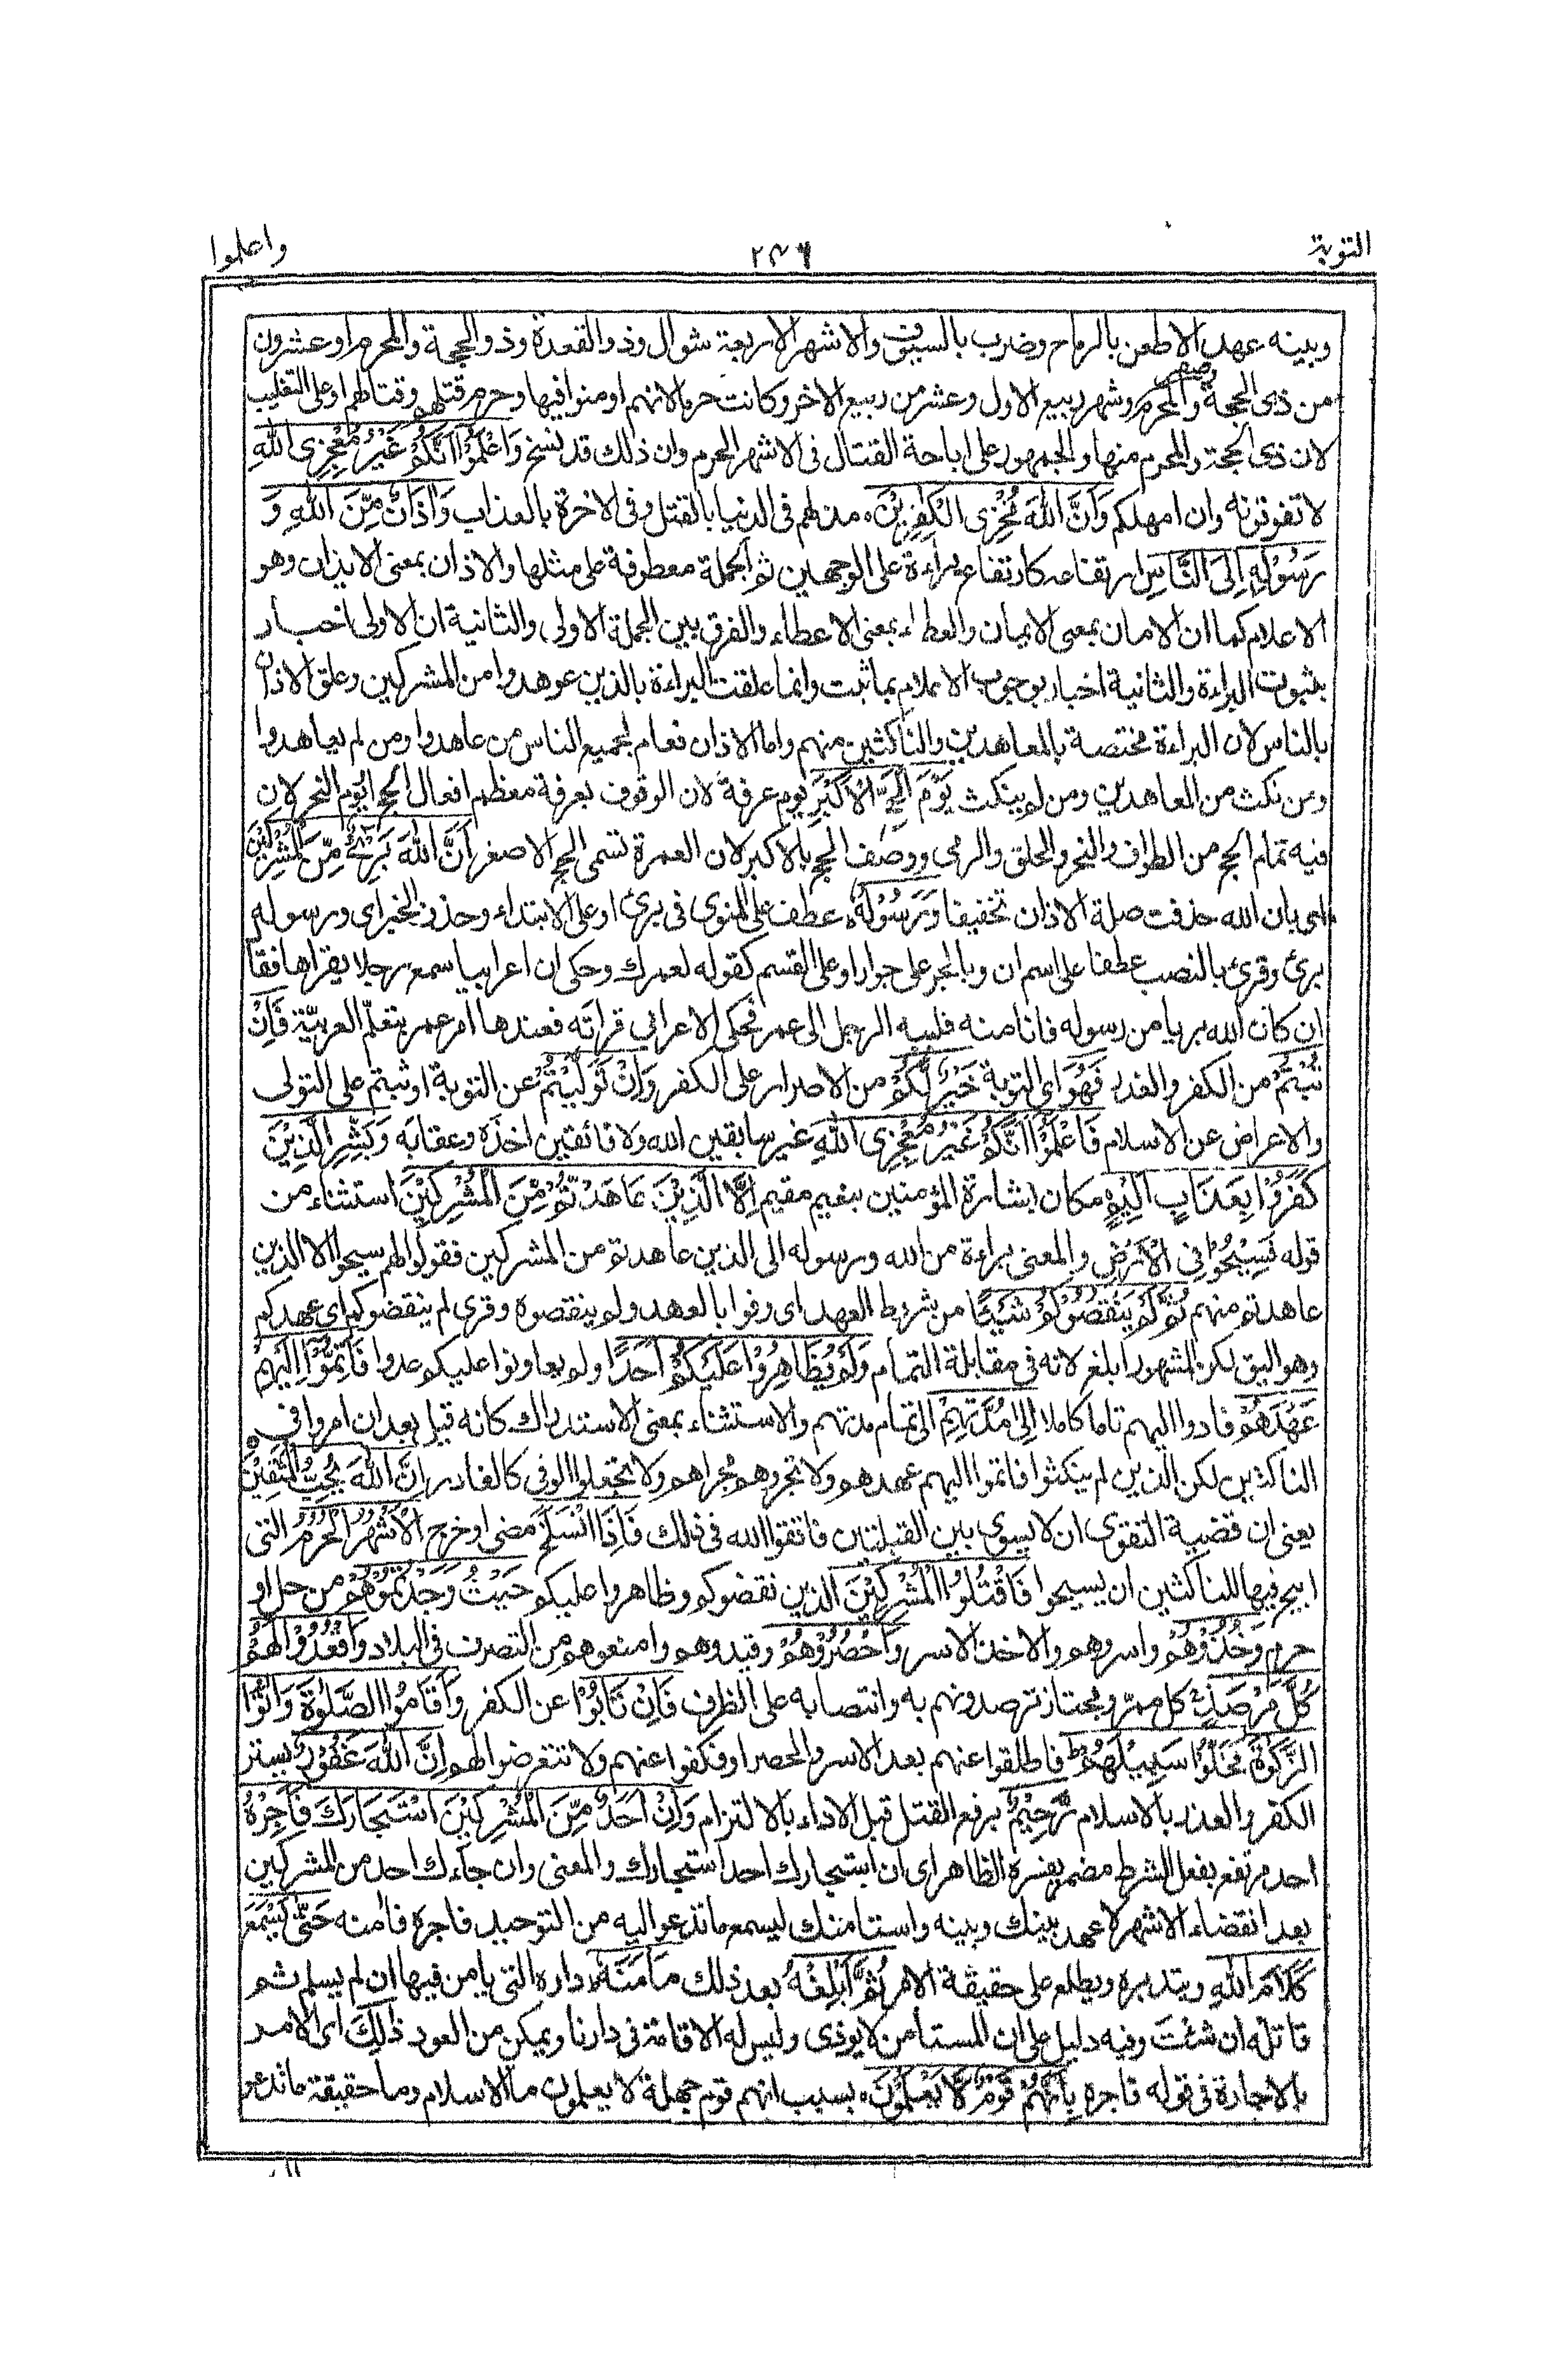 التوبة
٢٣٦
واعلموا
وبينه عهد الاطعن بالرماح وضرب بالسيوف والاشهر الاربعة شوال وذوالقعدة وذوالحجة والمحرم او عشرون
من ذى الحجة والمحرم وصفر وشهر ربيع الاول وعشر من ربيع الاخر وكانت حرما لانهم اومنوا فيها وحرم قتلهم وقتالهم او على التغليب
لان ذى الحجة والمحرم منها والجمهور على اباحة القتال فى الاشهر الحرم وان ذلك قد نسخ وَاعْلَمُوْٓا اَنَّكُمْ غَيْرُ مُعْجِزِى اللّٰهِ
لا تفوتونه وان امهلكم وَاَنَّ اللّٰهَ مُخْزِى الْكٰفِرِيْنَ۝ مذلهم فى الدنيا بالقتل وفى الاخرة بالعذاب وَاَذَانٌ مِّنَ اللّٰهِ وَ
رَسُوْلِهٖٓ اِلَى النَّاسِ ارتفاعه كارتفاع براءة على الوجهين ثم الجملة معطوفة على مثلها والاذان بمعنى الايذان وهو
الاعلام كما ان الامان بمعنى الايمان والعطاء بمعنى الاعطاء والفرق بين الجملة الاولى والثانية ان الاولى اخبار
بثبوت البراءة والثانية اخبار بوجوب الاعلام بما ثبت وانما علقت البراءة بالذين عوهدوا من المشركين وعلق الاذان
بالناس لان البراءة مختصة بالمعاهدين والناكثين منهم واما الاذان فعام لجميع الناس من عاهدوا ومن لم يعاهدوا
ومن نكث من المعاهدين ومن لم ينكث يَوْمَ الْحَجِّ الْاَكْبَرِ يوم عرفة لان الوقوف بعرفة معظم افعال الحج او يوم النحر لان
فيه تمام الحج من الطواف والنحر والحلق والرمى ووصف الحج بالاكبر لان العمرة تسمى الحج الاصغر اَنَّ اللّٰهَ بَرِىْٓءٌ مِّنَ الْمُشْرِكِيْنَ
اى بان الله حذفت صلة الاذان تخفيفا وَرَسُوْلُهٗ عطف على المنوى فى برئ او على الابتداء وحذف الخبر اى ورسوله
برئ وقرئ بالنصب عطفا على اسم ان وبالجر على الجوار او على القسم كقوله لعمرك وحكى ان اعرابيا سمع رجلا يقراها فقا
ان كان الله بريا من رسوله فانا منه فلببه الرجل الى عمر فحكى الاعرابي قراته فعندها امر عمر بتعلّم العربيّة فَاِنْ
تُبْتُمْ من الكفر والغدر فَهُوَ اى التوبة خَيْرٌ لَّكُمْ من الاصرار على الكفر وَاِنْ تَوَلَّيْتُمْ عن التوبة او ثبتم على التولى
والاعراض عن الاسلام فَاعْلَمُوْٓا اَنَّكُمْ غَيْرُ مُعْجِزِى اللّٰهِ غير سابقين الله ولا فائقين اخذه وعقابه وَبَشِّرِ الَّذِيْنَ
كَفَرُوْا بِعَذَابٍ اَلِيْمٍ مكان بشارة المؤمنين بنعيم مقيم اِلَّا الَّذِيْنَ عَاهَدْتُّمْ مِّنَ الْمُشْرِكِيْنَ استثناء من
قوله فَسِيْحُوْا فِى الْاَرْضِ والمعنى براءة من الله ورسوله الى الذين عاهدتم من المشركين فقولوا لهم سيحوا الا الذين
عاهدتم منهم ثُمَّ لَمْ يَنْقُصُوْكُمْ شَيْـًٔا من شروط العهد اى وفوا بالعهد ولم ينقصوه وقرئ لم ينقضوكم اى عهدكم
وهو اليق لكن المشهور ابلغ لانه فى مقابلة التمام وَلَمْ يُظَاهِرُوْا عَلَيْكُمْ اَحَدًا ولم يعاونوا عليكم عدوا فَاَتِمُّوْٓا اِلَيْهِمْ
عَهْدَهُمْ فادوا اليهم تاما كاملا اِلٰى مُدَّتِهِمْ الى تمام مدتهم والاستثناء بمعنى الاستدراك كانه قيل بعد ان امروا فى
الناكثين لكن الذين لم ينكثوا فاتموا اليهم عهدهم ولا تجروهم مجراهم ولا تجعلوا الوفى كالغادر اِنَّ اللّٰهَ يُحِبُّ الْمُتَّقِيْنَ۝
يعنى ان قضية التقوى ان لا يسوى بين القبيلتين فاتقوا الله فى ذلك فَاِذَا انْسَلَخَ مضى او خرج الْاَشْهُرُ الْحُرُمُ التى
ابيح فيها للناكثين ان يسيحوا فَاقْتُلُوا الْمُشْرِكِيْنَ الذين نقضوكم وظاهروا عليكم حَيْثُ وَجَدْتُّمُوْهُمْ من حل او
حرم وَخُذُوْهُمْ واسروهم والاخذ الاسر وَاحْصُرُوْهُمْ وقيدوهم وامنعوهم من التصرف فى البلاد وَاقْعُدُوْا لَهُمْ
كُلَّ مَرْصَدٍ كل ممرّ ومجتاز ترصدونهم به وانتصابه على الظرف فَاِنْ تَابُوْا عن الكفر وَاَقَامُوا الصَّلٰوةَ وَاٰتَوُا
الزَّكٰوةَ فَخَلُّوْا سَبِيْلَهُمْ فاطلقوا عنهم بعد الاسر والحصر او فكفوا عنهم ولا تتعرضوا لهم اِنَّ اللّٰهَ غَفُوْرٌ يستر
الكفر والغدر بالاسلام رَّحِيْمٌ يرفع القتل قبل الاداء بالالتزام وَاِنْ اَحَدٌ مِّنَ الْمُشْرِكِيْنَ اسْتَجَارَكَ فَاَجِرْهُ
احد مرتفع بفعل الشرط مضمر يفسره الظاهر اى ان استجارك احد استجارك والمعنى وان جاءك احد من المشركين
بعد انقضاء الاشهر لا عهد بينك وبينه واستامنك ليسمع ما تدعو اليه من التوحيد فاجره فامنه حَتّٰى يَسْمَعَ
كَلَامَ اللّٰهِ ويتدبره ويطلع على حقيقة الامر ثُمَّ اَبْلِغْهُ بعد ذلك مَاْمَنَهٗ داره التى يامن فيها ان لم يسلم ثم
قاتله ان شئت وفيه دليل على ان المستأمن لا يوذى وليس له الاقامة فى دارنا ويمكن من العود ذٰلِكَ اى الامر
بالاجارة فى قوله فاجره بِاَنَّهُمْ قَوْمٌ لَّا يَعْلَمُوْنَ۝ بسبب انهم قوم جهلة لا يعلمون ما الاسلام وما حقيقة ما تدعو